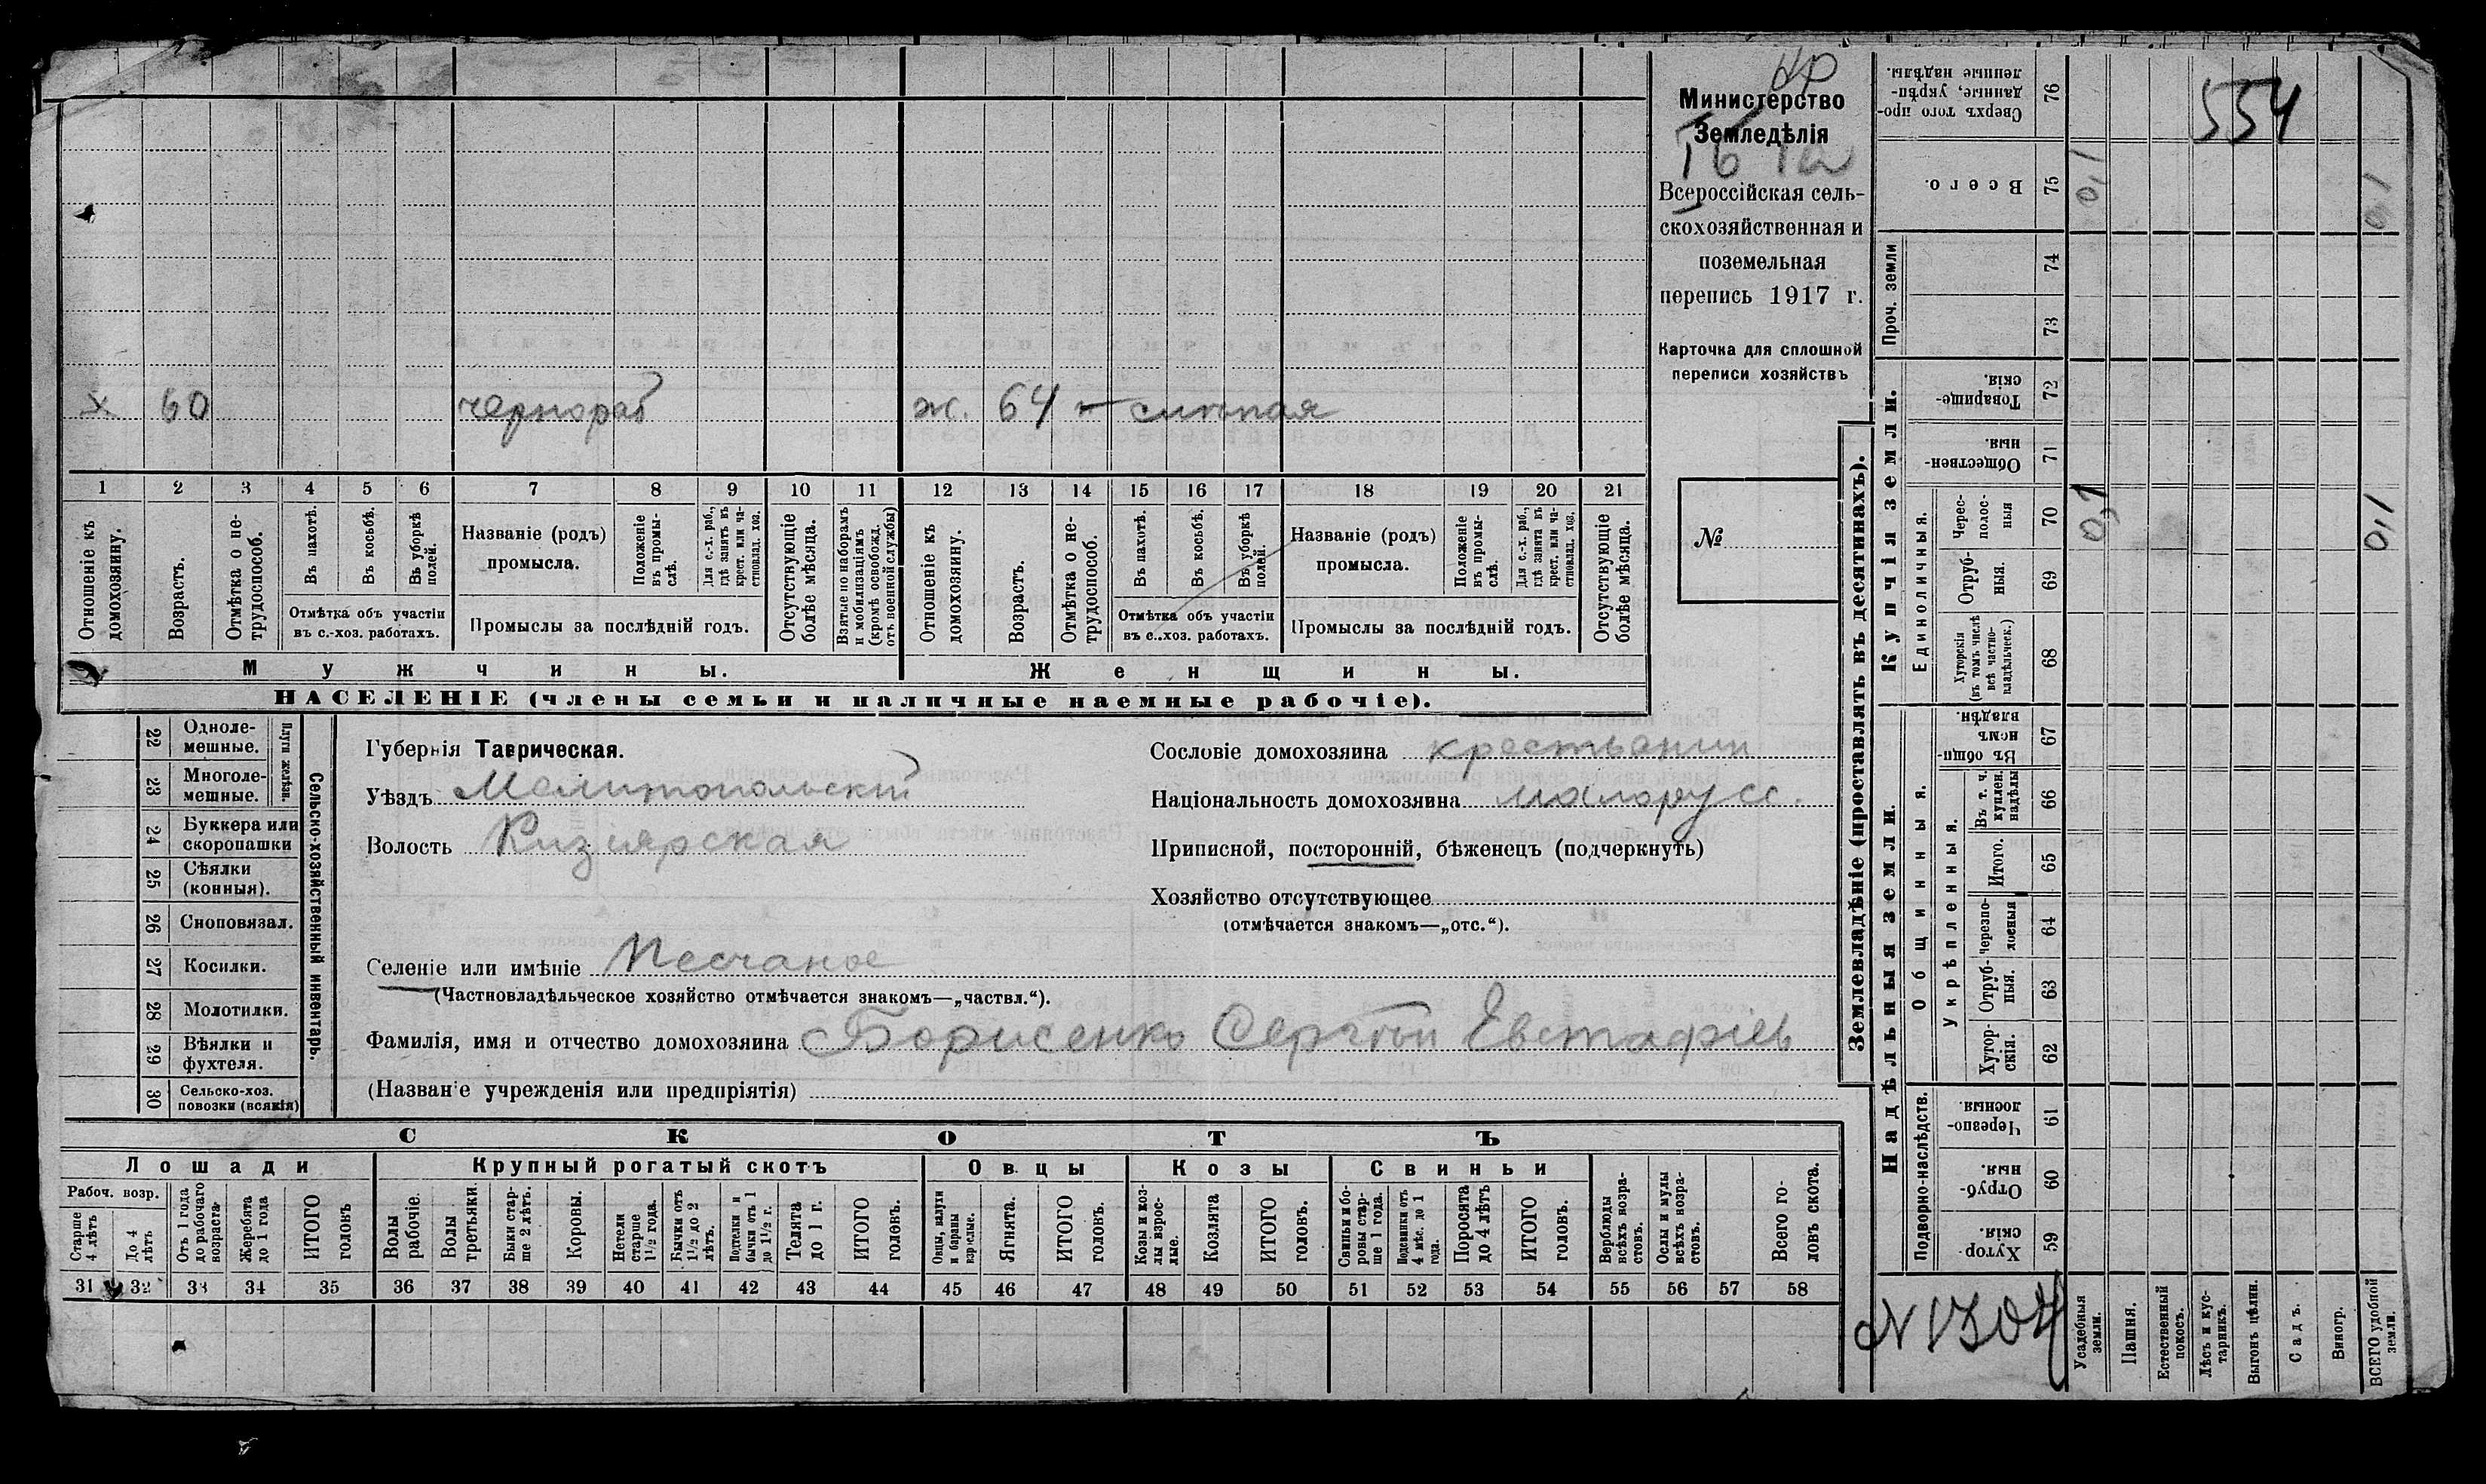 кр
Министерство
Земледѣлія
Всероссійская сель-
скохозяйственная и
поземельная
перепись 1917 г.
Карточка для сплошной
переписи хозяйствъ
№
х 60 чернораб ж. 64 слѣпая
1 2 3 4 5 6 7 8 9 10 11 12 13 14 15 16 17 18 19 20 21
Отношеніе къ домохозяину.
Возрастъ.
Отмѣтка о не-трудоспособ.
Въ пахотѣ.
Въ косьбѣ.
Въ уборкѣ полей.
Отмѣтка объ участіи
въ с.-хоз. работахъ.
Названіе (родъ)
промысла.
Положеніе въ промы-слѣ.
Для с.-х. раб., гдѣ занятъ въ крест. или ча-стновлад. хоз.
Промыслы за послѣдній годъ.
Отсутствующіе болѣе мѣсяца.
Взятые по наборамъ и мобилизаціямъ (кромѣ освобожд. отъ военной службы)
Отношеніе къ домохозяину.
Возрастъ.
Отмѣтка о не-трудоспособ.
Въ пахотѣ.
Въ косьбѣ.
Въ уборкѣ полей.
Отмѣтка объ участіи
въ с..хоз. работахъ.
Названіе (родъ)
промысла.
Положеніе въ промы-слѣ.
Для с.-х. раб., гдѣ занята въ крест. или ча-стновлад. хоз.
Промыслы за послѣдній годъ.
Отсутствующіе болѣе мѣсяца.
Мужчины.
Женщины.
НАСЕЛЕНІЕ (члены семьи и наличные наемные рабочіе).
22 Одноле-мешные.
23 Многоле-мешные.
Плуги желѣзн.
24 Буккера или скоропашки
25 Сѣялки (конныя).
26 Сноповязал.
27 Косилки.
28 Молотилки.
29 Вѣялки и фухтеля.
30 Сельско-хоз. повозки (всякія)
Сельско-хозяйственный инвентарь.
Губернія Таврическая.
Уѣздъ Мелитопольскій
Волость Кизіярская
Селеніе или имѣніе Песчаное
(Частновладѣльческое хозяйство отмѣчается знакомъ—„частвл.“).
Фамилія, имя и отчество домохозяина Борисенко Сергѣй Евстафіев
(Названіе учрежденія или предпріятія)
Сословіе домохозяина крестьянин
Національность домохозяина малорусс.
Приписной, посторонній, бѣженецъ (подчеркнуть)
Хозяйство отсутствующее
(отмѣчается знакомъ—„отс.“).
СКОТЪ
Лошади
Крупный рогатый скотъ
Овцы
Козы
Свиньи
Рабоч. возр.
Старше 4 лѣтъ
До 4 лѣтъ
Отъ 1 года до рабочаго возраста
Жеребята до 1 года
ИТОГО головъ
Волы рабочіе.
Волы третьяки.
Быки стар-ше 2 лѣтъ.
Коровы.
Нетели старше 1½ года.
Бычки отъ 1½ до 2 лѣтъ.
Подтелки и бычки отъ 1 до 1½ г.
Телята до 1 г.
ИТОГО головъ.
Овцы, валухи и бараны взрослые.
Ягнята.
ИТОГО головъ.
Козы и коз-лы взрос-лые.
Козлята
ИТОГО головъ.
Свиньи и бо-ровы стар-ше 1 года.
Подсвинки отъ 4 мѣс. до 1 года.
Поросята до 4 лѣтъ
ИТОГО головъ.
Верблюды всѣхъ возра-стовъ.
Ослы и мулы всѣхъ возра-стовъ.
Всего го-ловъ скота.
31 32 33 34 35 36 37 38 39 40 41 42 43 44 45 46 47 48 49 50 51 52 53 54 55 56 57 58
Землевладѣніе (проставлять въ десятинахъ).
554
Сверхъ того про-данные, укрѣп-ленные надѣлы. 76
Всего. 75 0,1 0,1
Проч. земли 74
73
Купчія земли.
Товарище-скія. 72
Обществен-ныя 71
Единоличныя.
Черес-полос-ныя 70 0,1 0,1
Отруб-ныя. 69
Хуторскія (въ томъ числѣ всѣ частно-владѣльческ.) 68
Надѣльныя земли.
Общинныя.
Въ общи нномъ владѣн. 67
Укрѣпленныя.
Въ т. ч. куплен. надѣлы 66
Итого. 65
Черезпо-лосныя 64
Отруб-ныя. 63
Хутор-скія. 62
Подворно-наслѣдств.
Черезпо-лосныя. 61
Отруб-ныя. 60
Хутор-скія. 59
N 1304
Усадебныя земли.
Пашня.
Естественный покосъ.
Лѣсъ и кус-тарникъ.
Выгонъ цѣлин.
Садъ.
Виногр.
ВСЕГО удобной земли.